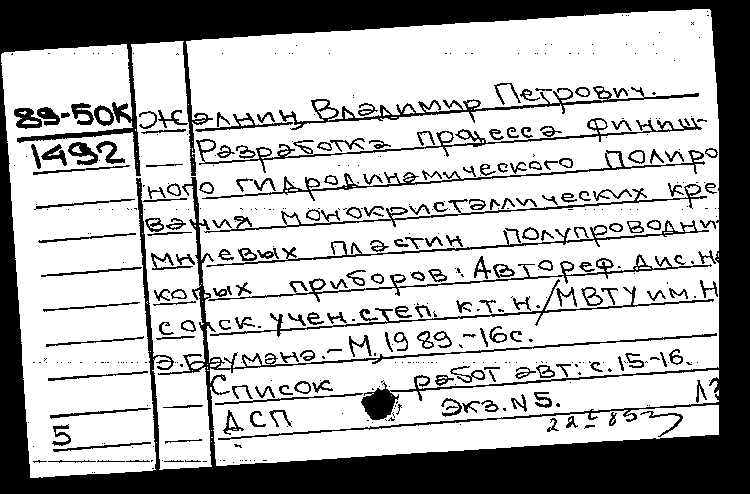 89-50К
1492
Жалнин, Владимир Петрович.
Разработка процесса финиш-
ного гидродинамического полиро
вания монокристаллических кре
мниевых пластин полупроводни
ковых приборов: Автореф. дис. на
соиск. учен. степ. к.т.н./МВТУ им. Н
Э. Баумана.-М, 1989.-16с.
Список работ авт: с. 15-16.
ДСП Экз. N 5.
5